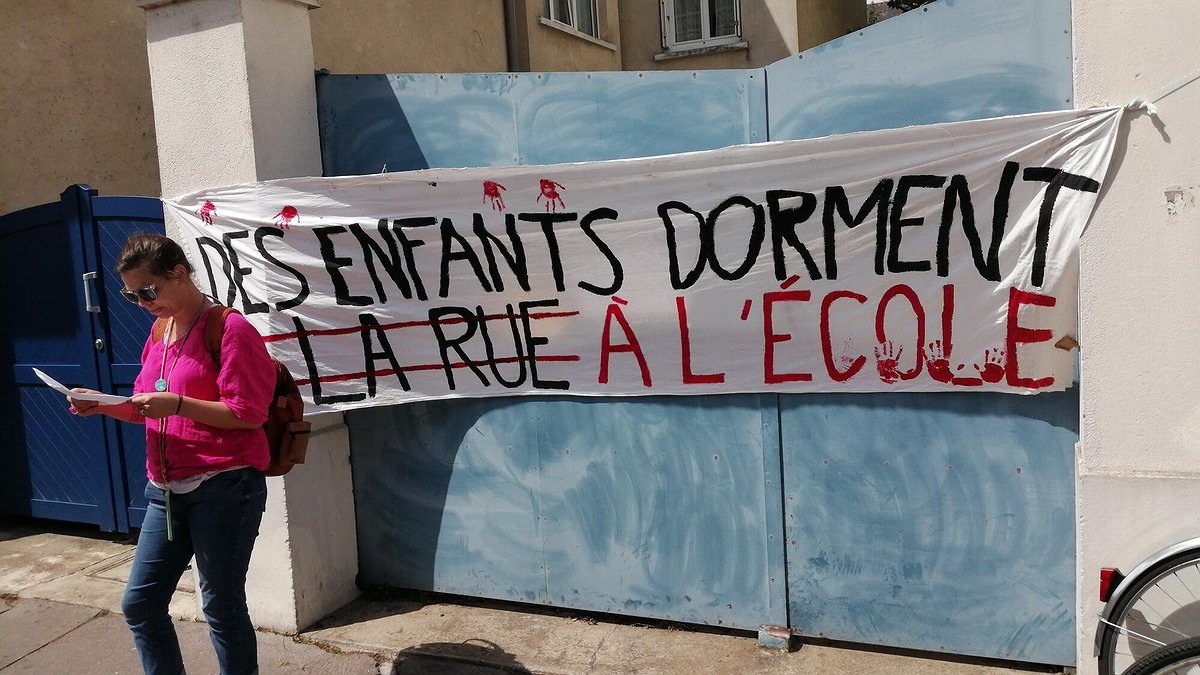 DES ENFANTS DORMENT
LA RUE À L'ÉCOLE